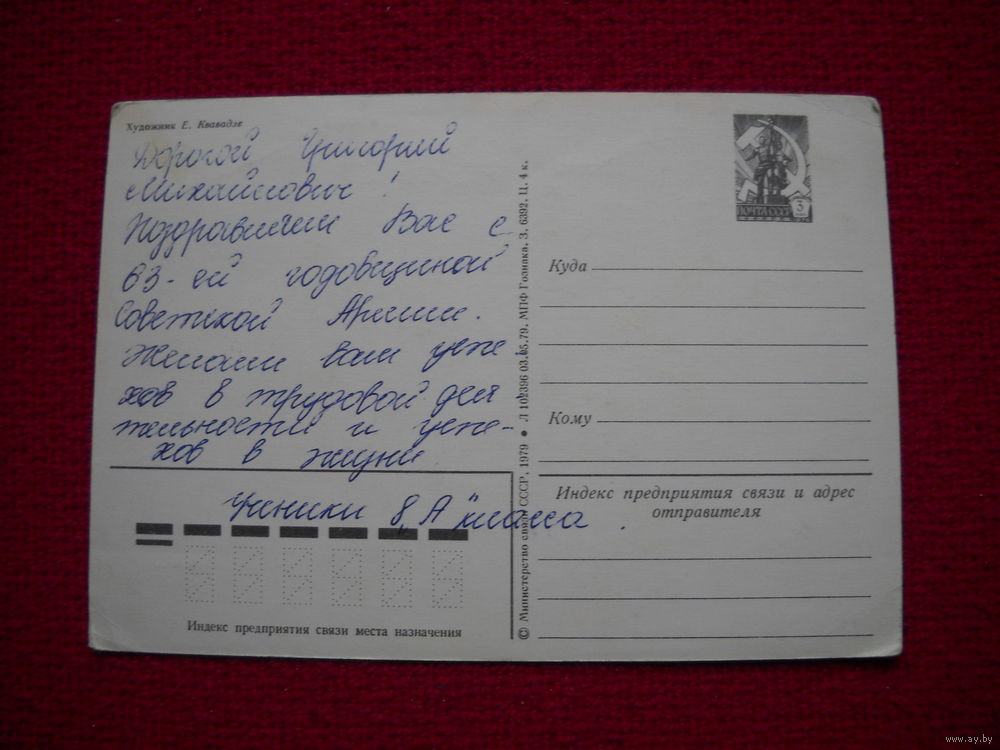 Художник Е. Квавадзе
Дорогой Григорий
Михайлович!
Поздравляем Вас с
63-ей годовщиной
Советской Армии.
Желаем вам успе
хов в трудовой дея
тельности и успе-
хов в жизни
Ученики 8 „А" класса.
Индекс предприятия связи места назначения
© Министерство связи СССР, 1979 • Л 102396 03.05.79. МПФ Гознака. З. 6392. Ц. 4 к.
ПОЧТА СССР
3
Куда
Кому
Индекс предприятия связи и адрес
отправителя
www.ay.by